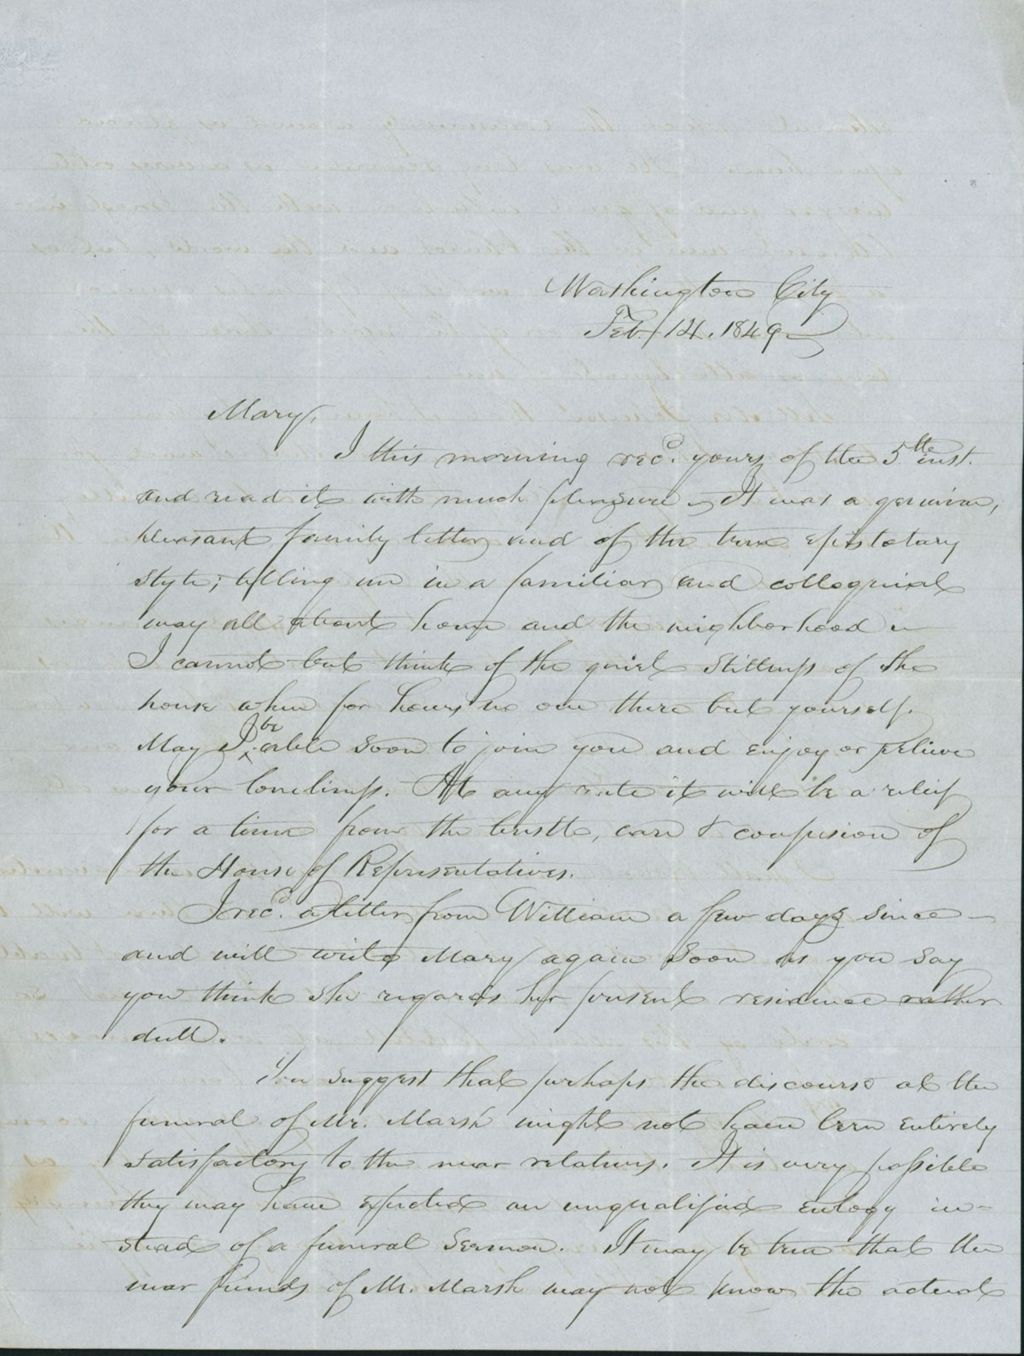 Washington City
Feb. 14. 1849
Mary,
I this morning recd. yours of the 5th inst.
and read it with much pleasure - It was a genuine,
pleasant family letter, and of the true epistolary
style; telling me in a familiar and colloquial
way all about home and the neighborhood -
I cannot but think of the quiet stillness of the
house when for hours no one there but yourself.
May I be able soon to join you and enjoy or relieve
your loneliness. At any rate it will be a relief
for a time from the bustle, care & confusion of
the House of Representatives.
I recd. a letter from William a few days since -
and will write Mary again soon as you say
you think she regards her present residence rather
dull.
You suggest that perhaps the discourse at the
funeral of Mr. Marsh might not have been entirely
satisfactory to the near relatives. It is very possible
they may have expected an unqualified eulogy in-
stead of a funeral sermon. It may be true that the
near friends of Mr. Marsh may not know the actual